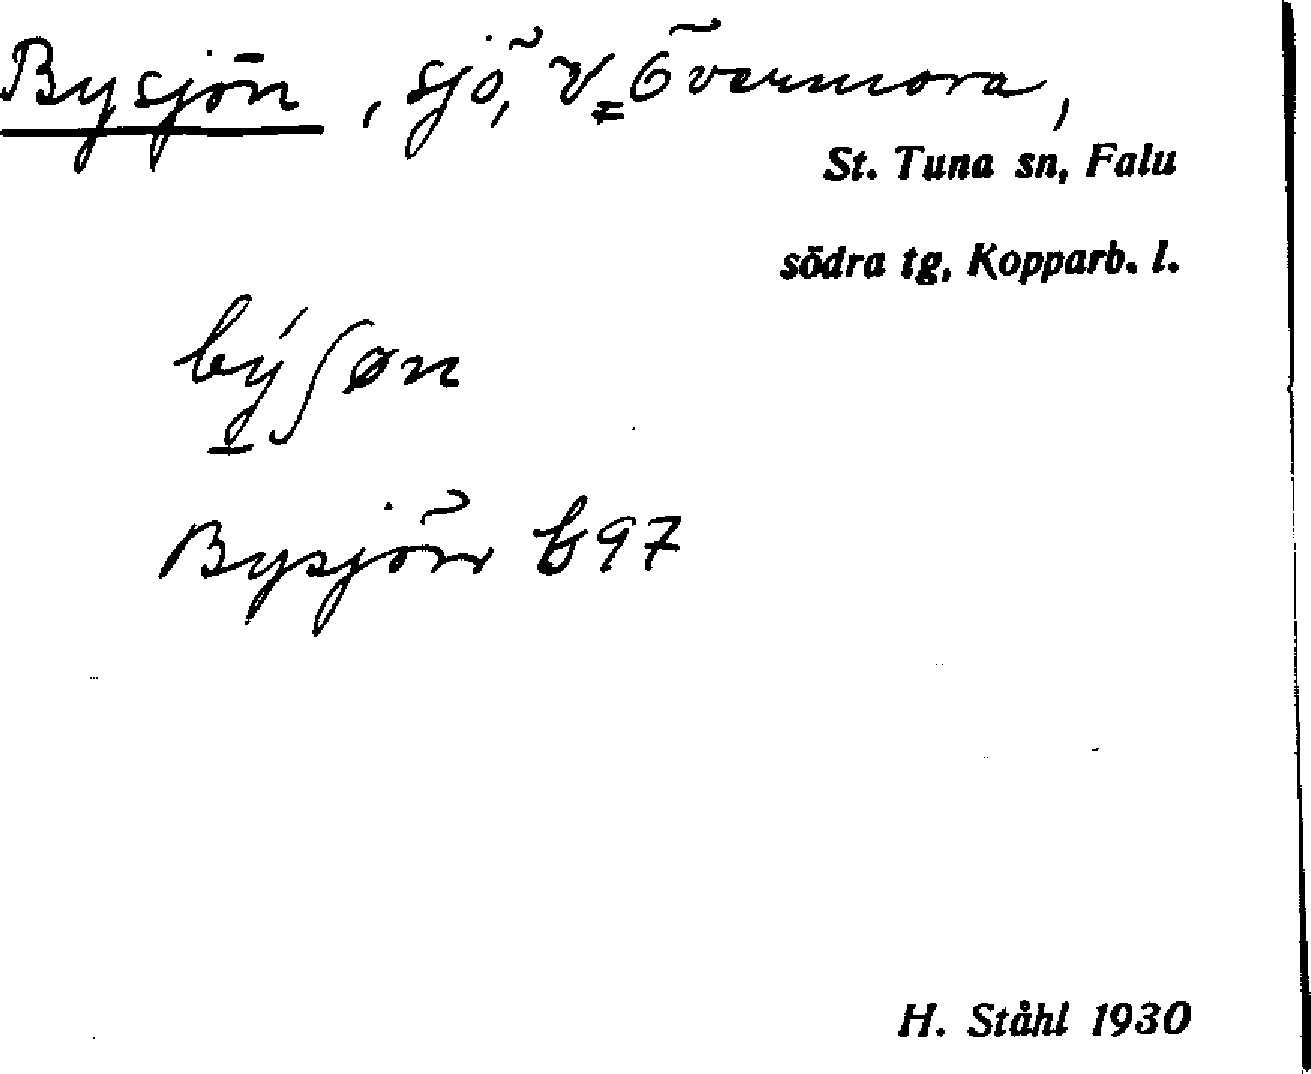 Bysjön, sjö, V Övermora,
St. Tuna sn, Falu
södra tg, Kopparb. l.
býʃøn
Bysjön b97
H. Ståhl 1930